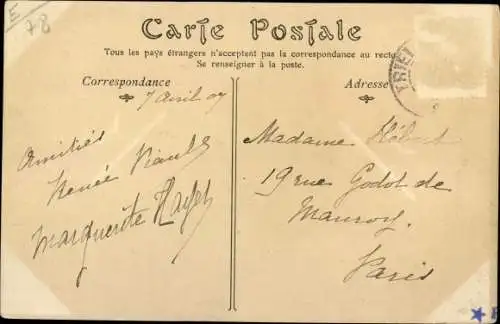 E
78
Carte Postale
Tous les pays étrangers n'acceptent pas la correspondance au recto
Se renseigner à la poste.
Correspondance
Adresse
7 Avril 07
Amitiés
Renée
Marguerite
Madame Hébert
19 rue Godot de
Mauroy
Paris